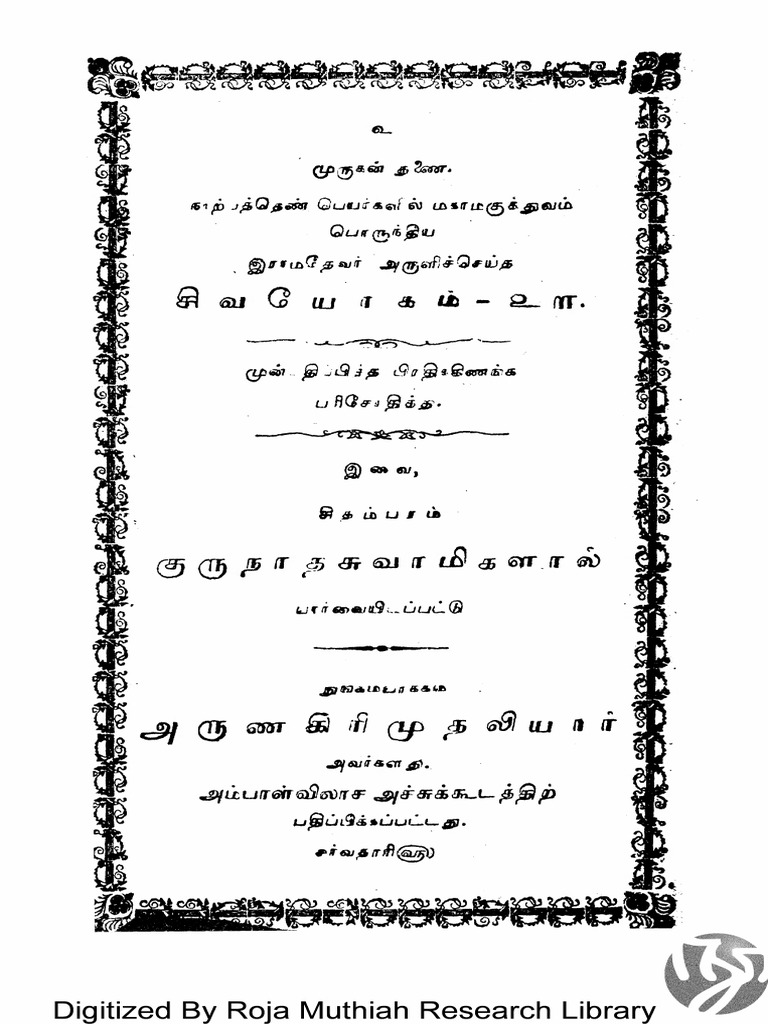 உ
முருகன் துணை.
நாற்பத்தெண் பெயர்களில் மகாமகுத்துவம்
பொருந்திய
இராமதேவர் அருளிச்செய்த
சிவயோகம் - உள.
முன் பிரதிக்கிணங்க
பரிசோதித்த.
இவை,
சிதம்பரம்
குருநாதசுவாமிகளால்
பார்வையிடப்பட்டு
நுங்கமபாக்கம்
அருணகிரிமுதலியார்
அவர்களது.
அம்பாள்விலாச அச்சுக்கூடத்திற்
பதிப்பிக்கப்பட்டது.
சர்வதாரி௵
Digitized By Roja Muthiah Research Library